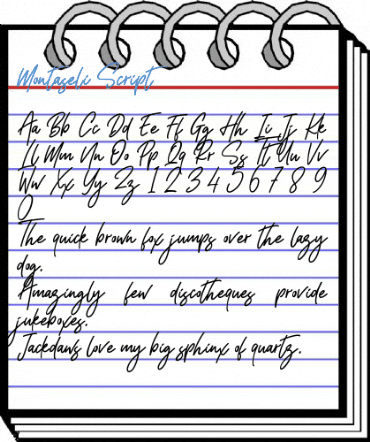 Montaseli Script
Aa Bb Cc Dd Ee Ff Gg Hh Ii Jj Kk
Ll Mm Nn Oo Pp Qq Rr Ss Tt Uu Vv
Ww Xx Yy Zz 1 2 3 4 5 6 7 8 9
0
The quick brown fox jumps over the lazy
dog.
Amazingly few discotheques provide
jukeboxes.
Jackdaws love my big sphinx of quartz.